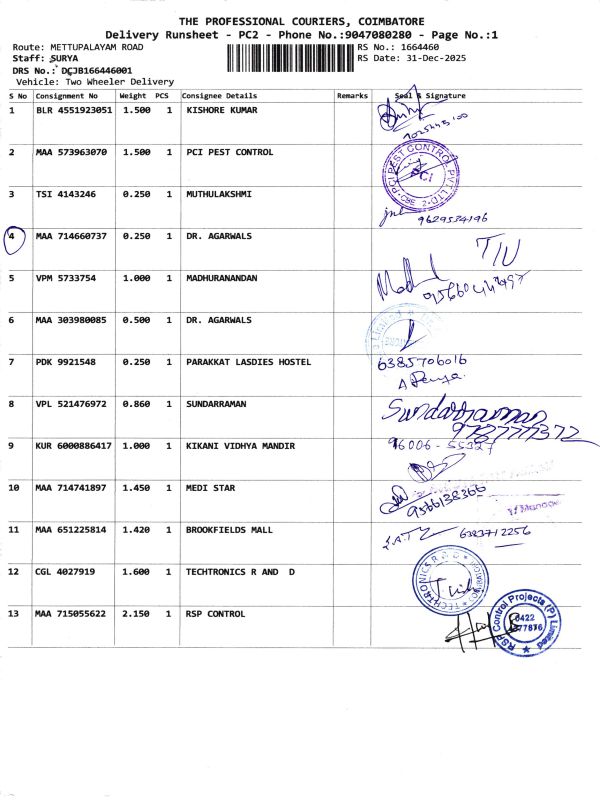 THE PROFESSIONAL COURIERS, COIMBATORE
Delivery Runsheet - PC2 - Phone No.:9047080280 - Page No.:1
Route: METTUPALAYAM ROAD RS No.: 1664460
Staff: SURYA RS Date: 31-Dec-2025
DRS No.: DCJB166446001
Vehicle: Two Wheeler Delivery
S No Consignment No Weight PCS Consignee Details Remarks Seal & Signature
1 BLR 4551923051 1.500 1 KISHORE KUMAR
2 MAA 573963070 1.500 1 PCI PEST CONTROL
PCI PEST CONTROL PVT. LTD.
PCI
CBE 2
3 TSI 4143246 0.250 1 MUTHULAKSHMI
9629534196
4 MAA 714660737 0.250 1 DR. AGARWALS
5 VPM 5733754 1.000 1 MADHURANANDAN
6 MAA 303980085 0.500 1 DR. AGARWALS
7 PDK 9921548 0.250 1 PARAKKAT LASDIES HOSTEL 6385706016
8 VPL 521476972 0.860 1 SUNDARRAMAN Sundarraman
9 KUR 6000886417 1.000 1 KIKANI VIDHYA MANDIR 96006-55327
10 MAA 714741897 1.450 1 MEDI STAR
9566138366
11 MAA 651225814 1.420 1 BROOKFIELDS MALL 6383712256
12 CGL 4027919 1.600 1 TECHTRONICS R AND D
TECHTRONICS R & D
13 MAA 715055622 2.150 1 RSP CONTROL
RSP Control Projects (P) Limited
0422